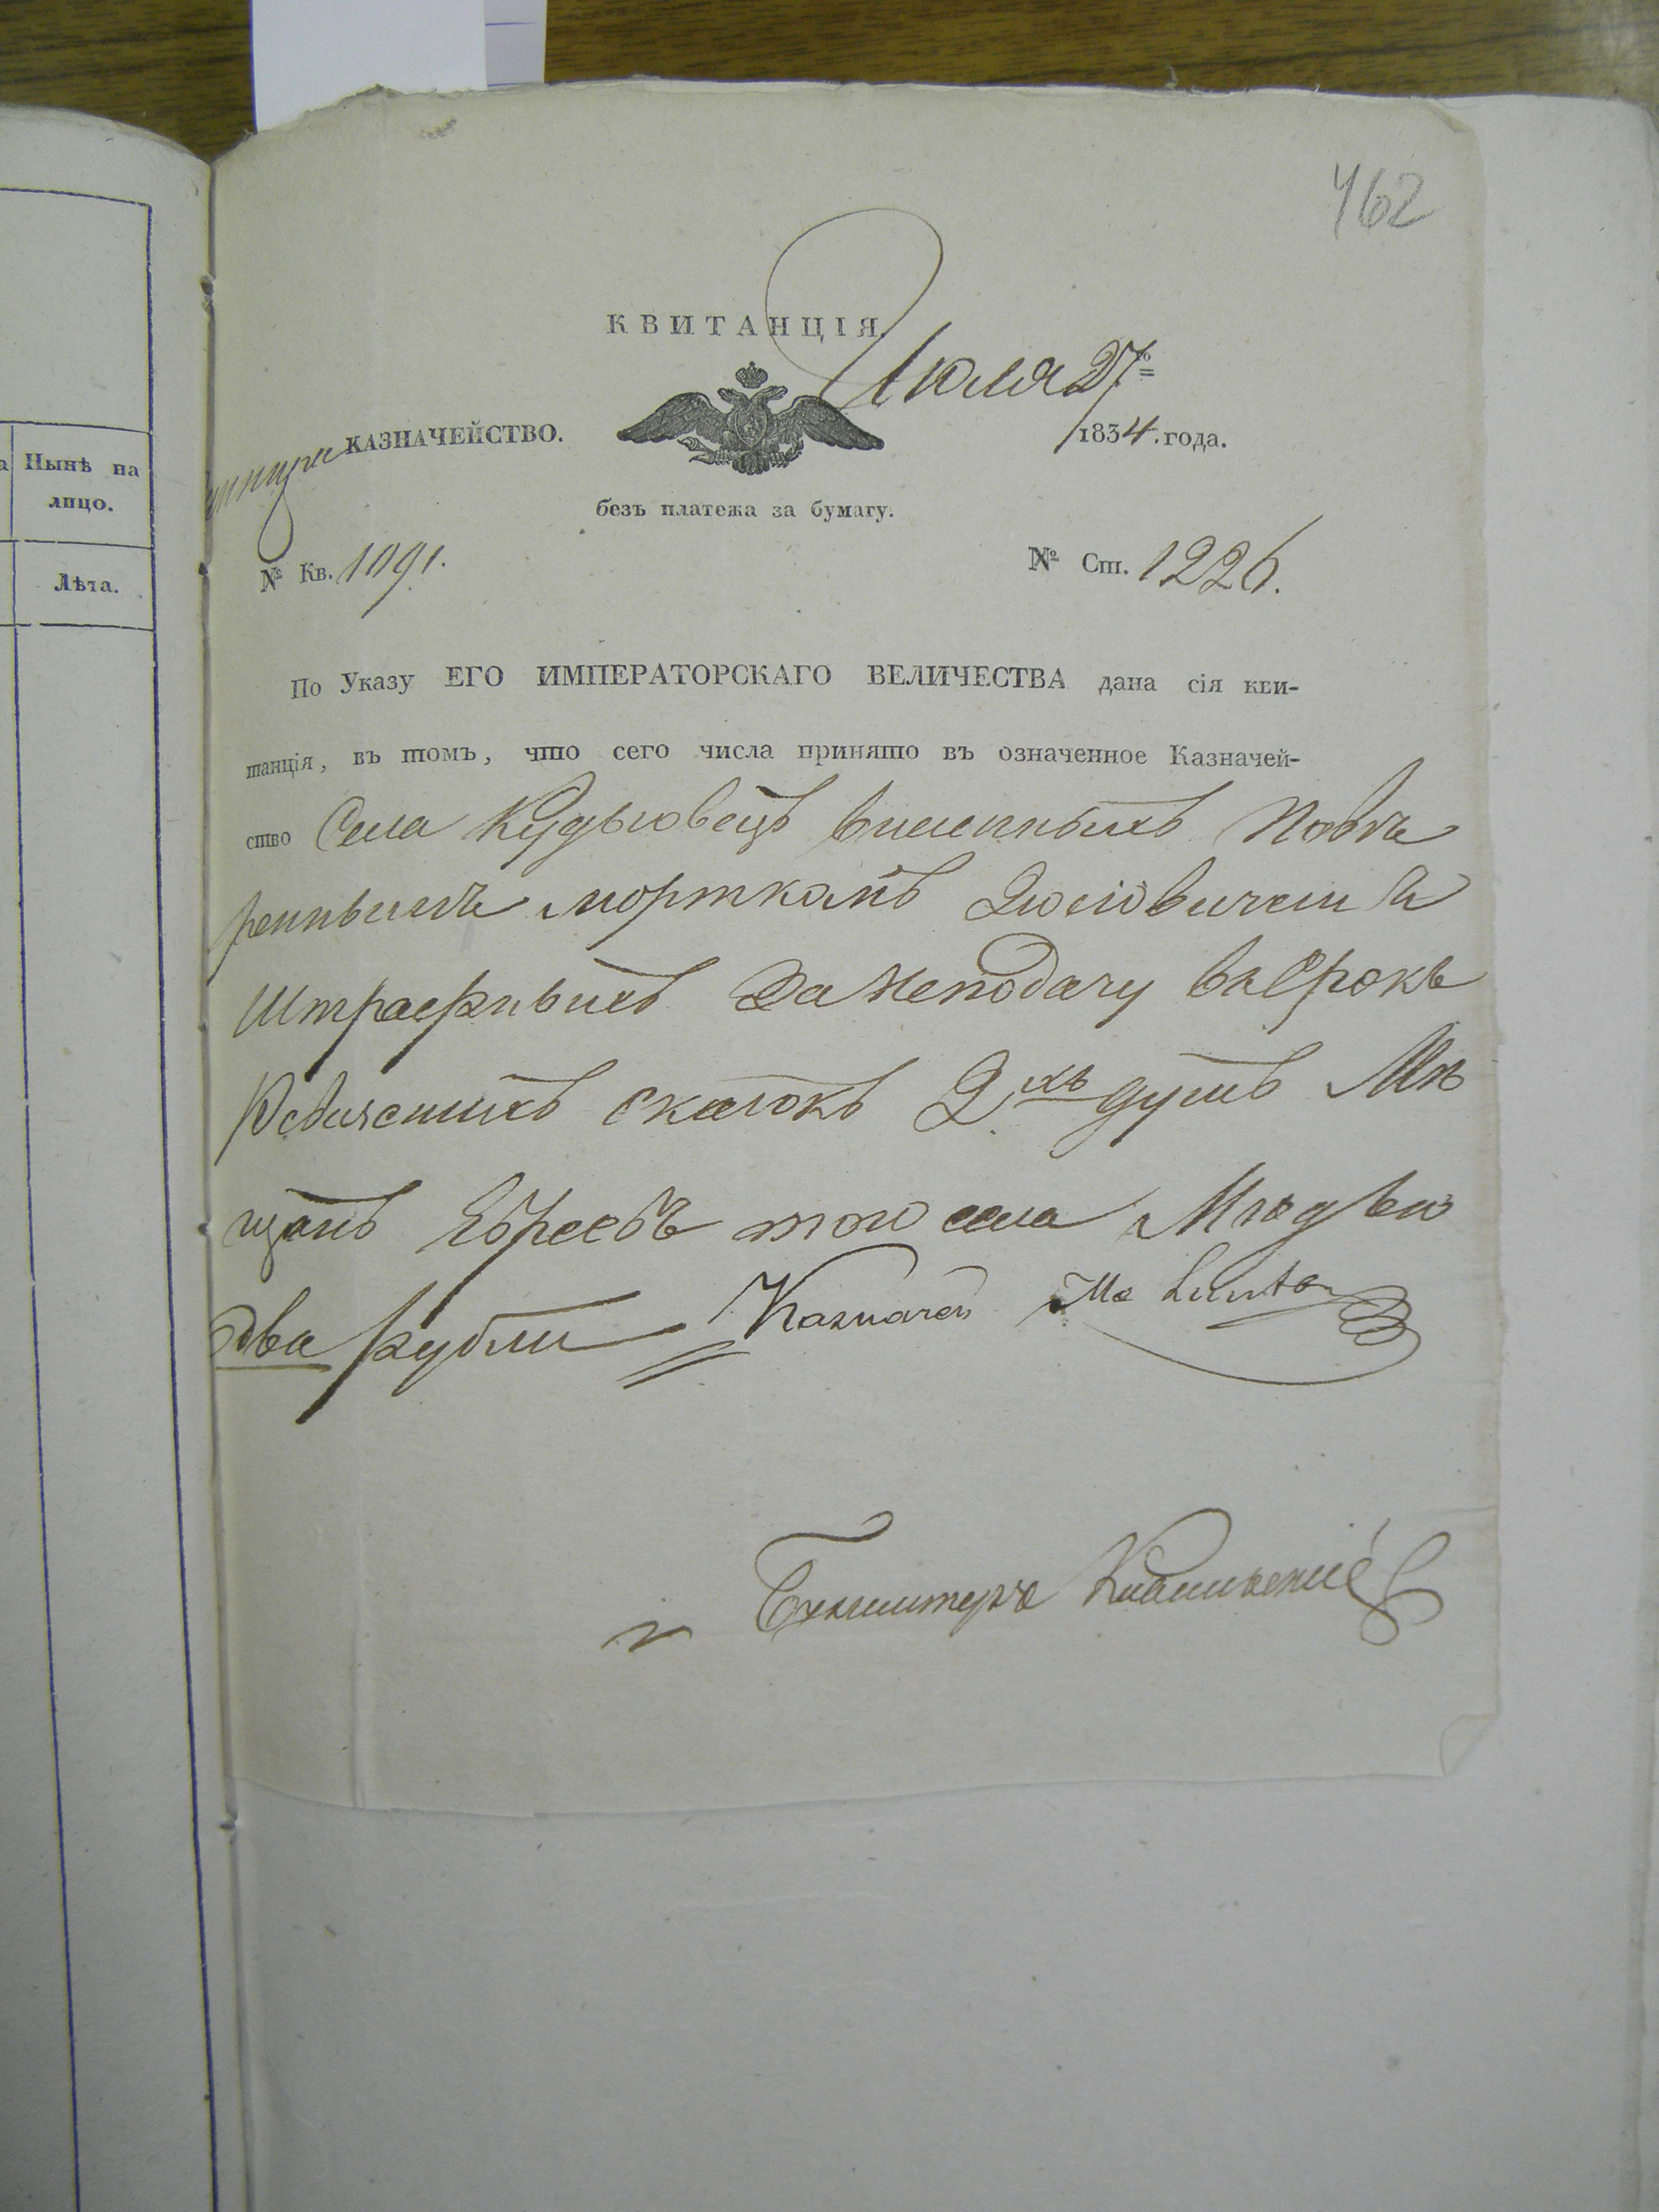 462
КВИТАНЦІЯ.
Июля 27го
КАЗНАЧЕЙСТВО.
1834.года.
безъ платежа за бумагу.
№ Кв. 1091.
№ Ст. 1226.
По Указу ЕГО ИМПЕРАТОРСКАГО ВЕЛИЧЕСТВА дана сія кви-
танція, въ томъ, что сего числа принято въ означенное Казначей-
ство Села внесенныхъ Повѣ
реннымъ
Штрафныхъ За Неподачу въ Срокъ
Ревижскихъ сказокъ 2хъ душъ Мѣ
щанъ Евреевъ того села
два рубли Казначей
Бухгалтеръ
а Нынѣ на
лицо.
Лѣта.